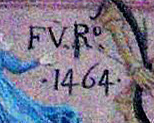 F.V.Rº.
·1464·